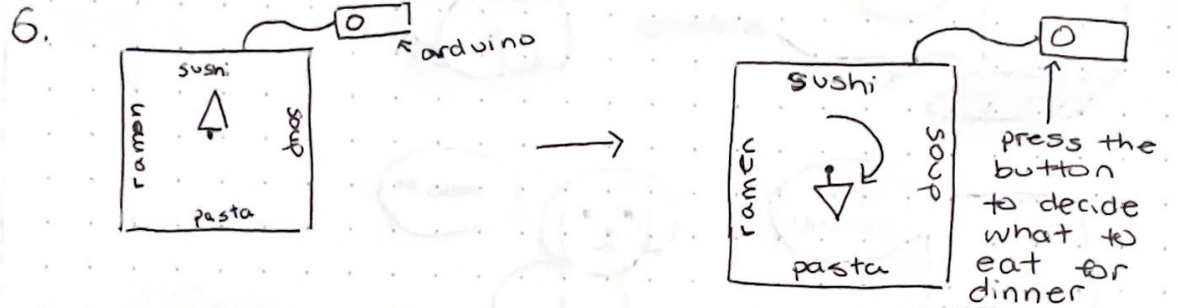 6.
sushi
arduino
ramen
soup
pasta
sushi
ramen
soup
pasta
press the
button
to decide
what to
eat for
dinner